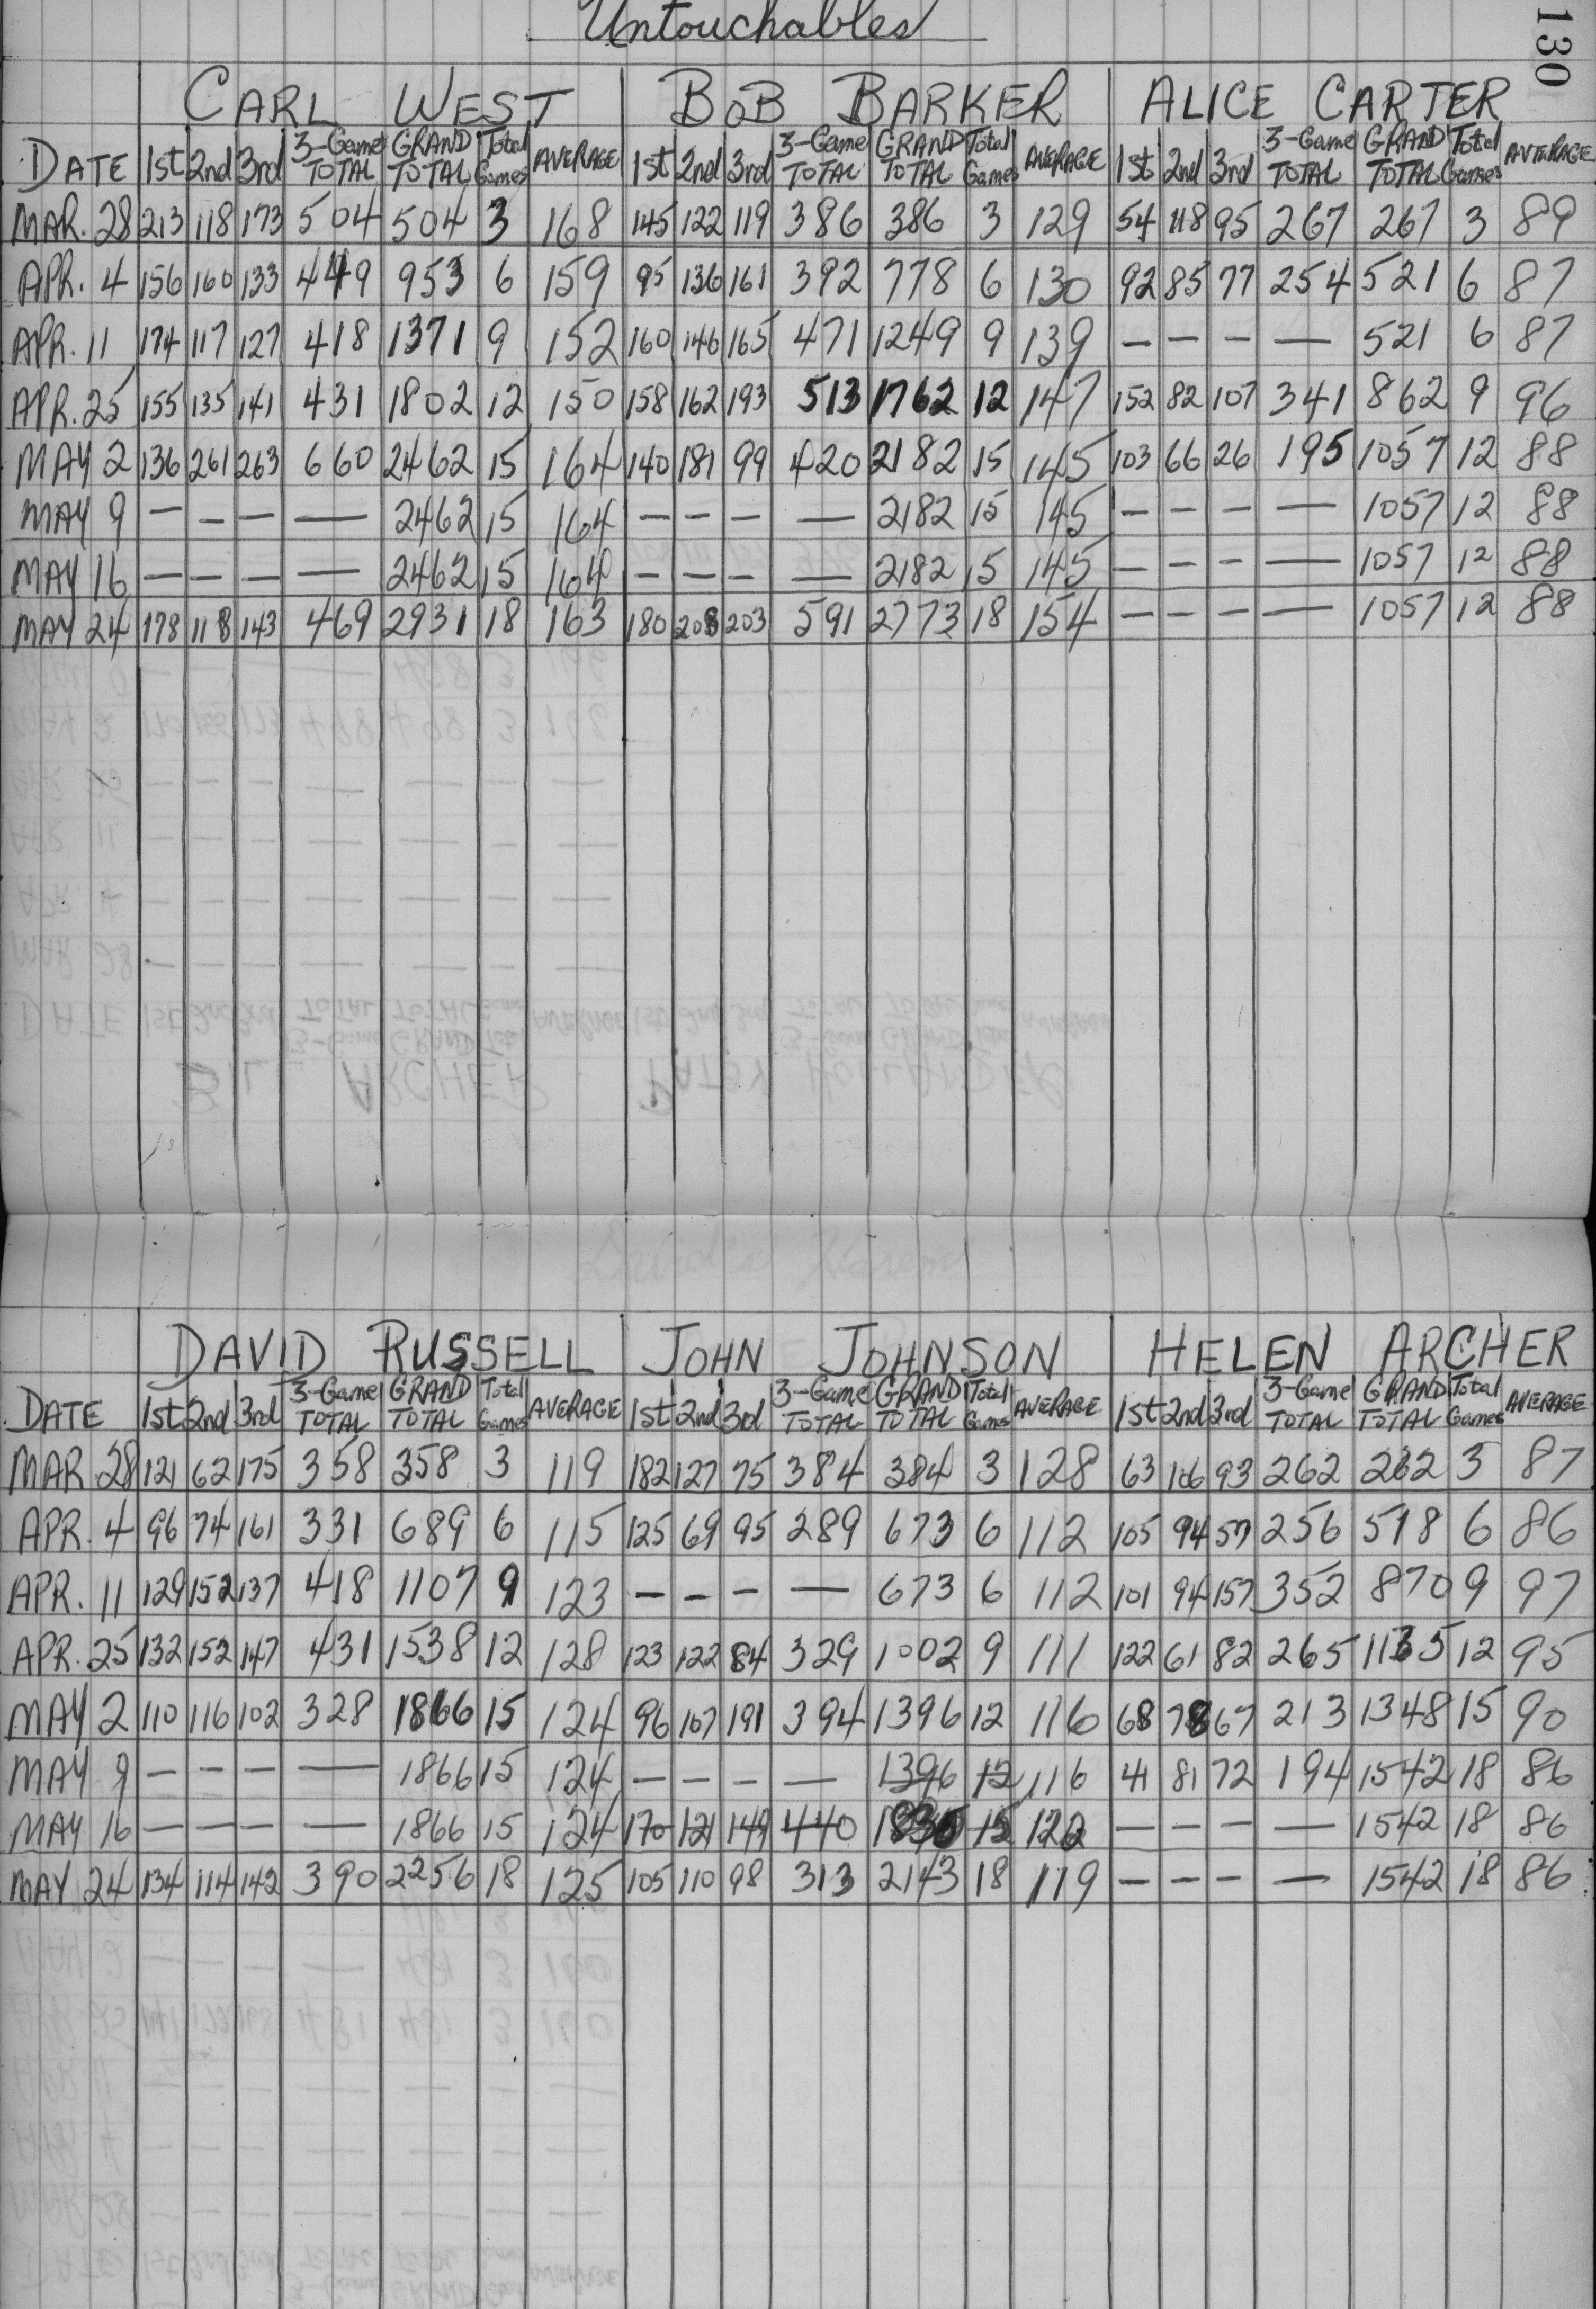 Untouchables
130
CARL WEST BOB BARKER ALICE CARTER
DATE 1st 2nd 3rd 3-Game TOTAL GRAND TOTAL Total Games AVERAGE 1st 2nd 3rd 3-Game TOTAL GRAND TOTAL Total Games AVERAGE 1st 2nd 3rd 3-Game TOTAL GRAND TOTAL Total Games AVERAGE
MAR. 28 213 118 173 504 504 3 168 145 122 119 386 386 3 129 54 118 95 267 267 3 89
APR. 4 156 160 133 449 953 6 159 95 136 161 392 778 6 130 92 85 77 254 521 6 87
APR. 11 174 117 127 418 1371 9 152 160 146 165 471 1249 9 139 — — — — 521 6 87
APR. 25 155 135 141 431 1802 12 150 158 162 193 513 1762 12 147 152 82 107 341 862 9 96
MAY 2 136 261 263 660 2462 15 164 140 181 99 420 2182 15 145 103 66 26 195 1057 12 88
MAY 9 — — — — 2462 15 164 — — — — 2182 15 145 — — — — 1057 12 88
MAY 16 — — — — 2462 15 164 — — — — 2182 15 145 — — — — 1057 12 88
MAY 24 178 118 143 469 2931 18 163 180 208 203 591 2773 18 154 — — — — 1057 12 88
DAVID RUSSELL JOHN JOHNSON HELEN ARCHER
DATE 1st 2nd 3rd 3-Game TOTAL GRAND TOTAL Total Games AVERAGE 1st 2nd 3rd 3-Game TOTAL GRAND TOTAL Total Games AVERAGE 1st 2nd 3rd 3-Game TOTAL GRAND TOTAL Total Games AVERAGE
MAR. 28 121 62 175 358 358 3 119 182 127 75 384 384 3 128 63 106 93 262 262 3 87
APR. 4 96 74 161 331 689 6 115 125 69 95 289 673 6 112 105 94 57 256 518 6 86
APR. 11 129 152 137 418 1107 9 123 — — — — 673 6 112 101 94 157 352 870 9 97
APR. 25 132 152 147 431 1538 12 128 123 122 84 329 1002 9 111 122 61 82 265 1135 12 95
MAY 2 110 116 102 328 1866 15 124 96 107 191 394 1396 12 116 68 78 67 213 1348 15 90
MAY 9 — — — — 1866 15 124 — — — — 1396 12 116 41 81 72 194 1542 18 86
MAY 16 — — — — 1866 15 124 170 121 149 440 15 122 — — — — 1542 18 86
MAY 24 134 114 142 390 2256 18 125 105 110 98 313 2143 18 119 — — — — 1542 18 86